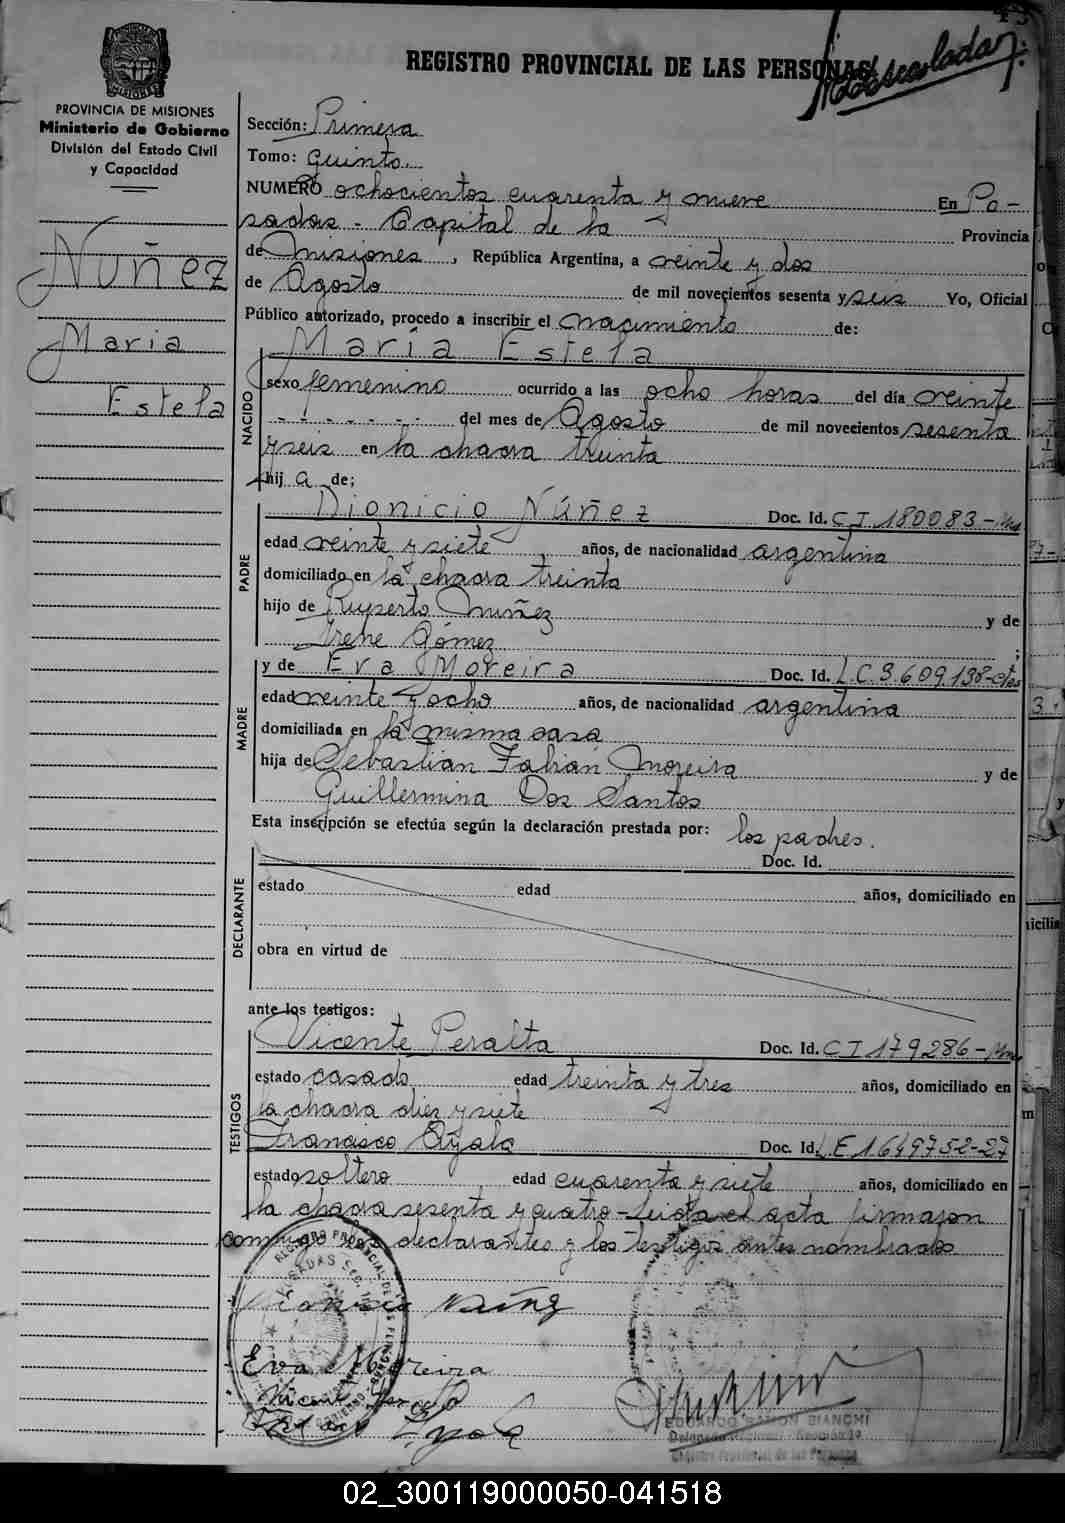 REGISTRO PROVINCIAL DE LAS PERSONAS
MISIONES
PROVINCIA DE MISIONES
Ministerio de Gobierno
División del Estado Civil
y Capacidad
Núñez
Maria
Estela
Sección: Primera
Tomo: Quinto
NUMERO ochocientos cuarenta y nueve En Po-
sadas - Capital de la Provincia
de Misiones, República Argentina, a veinte y dos
de Agosto de mil novecientos sesenta y seis Yo, Oficial
Público autorizado, procedo a inscribir el nacimiento de:
NACIDO
María Estela
sexo femenino ocurrido a las ocho horas del día veinte
- - - - - - - del mes de Agosto de mil novecientos sesenta
y seis en la chacra treinta
hij a de;
PADRE
Dionicio Núñez Doc. Id. C I 180083-Mnes
edad veinte y siete años, de nacionalidad argentina
domiciliado en la chacra treinta
hijo de Ruperto Nuñez y de
Irene Gómez ;
MADRE
y de Eva Moreira Doc. Id. L.C.3.609.138-Ctes
edad veinte y ocho años, de nacionalidad argentina
domiciliada en la misma casa
hija de Sebastián Fabián Moreira y de
Guillermina Dos Santos
Esta inscripción se efectúa según la declaración prestada por: los padres.
DECLARANTE
Doc. Id.
estado edad años, domiciliado en
obra en virtud de
ante los testigos:
TESTIGOS
Vicente Peralta Doc. Id. C I 179286-Mnes
estado casado edad treinta y tres años, domiciliado en
la chacra diez y siete
Francisco Ayala Doc. Id. L E 1649752-27
estado soltero edad cuarenta y siete años, domiciliado en
la chacra sesenta y cuatro - Leida el acta firmaron
conmigo los declarantes y los testigos antes nombrados
Dionisio Nuñez
Eva Moreira
EDUARDO RAMON BIANCHI
02_300119000050-041518